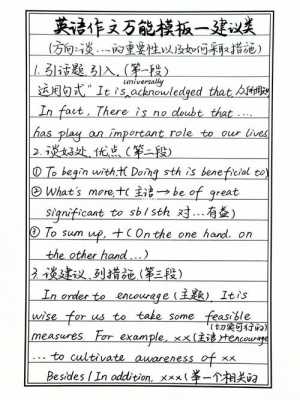 英语作文万能模板—建议类
(方向:谈…的重要性以及如何采取措施)
1. 引话题,引入, (第一段)
universally
运用句式" It is acknowledged that 众所周知
In fact, There is no doubt that ....
has play an important role to our lives
2. 谈好处、优点 (第二段)
① To begin with,+( Doing sth is beneficial to)
② What's more,+( 主语 → be of great
significant to sb/sth 对…有益)
③ To sum up, +( On the one hand. on
the other hand...)
3. 谈建议、列措施 (第三段)
In order to encourage (主题), It is
wise for us to take some feasible
(切实可行的)
measures. For example, xx(主语)+encourage
... to cultivate awareness of xx
Besides / In addition, xxx( 举一个相关的